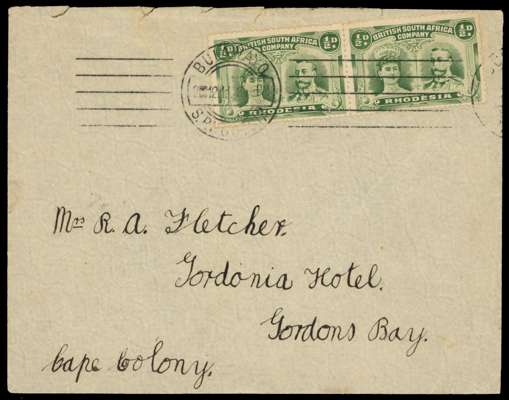 ½d. BRITISH SOUTH AFRICA COMPANY ½d.
RHODESIA
½d. BRITISH SOUTH AFRICA COMPANY ½d.
RHODESIA
Mrs R. A. Fletcher.
Gordonia Hotel.
Gordons Bay.
Cape Colony.